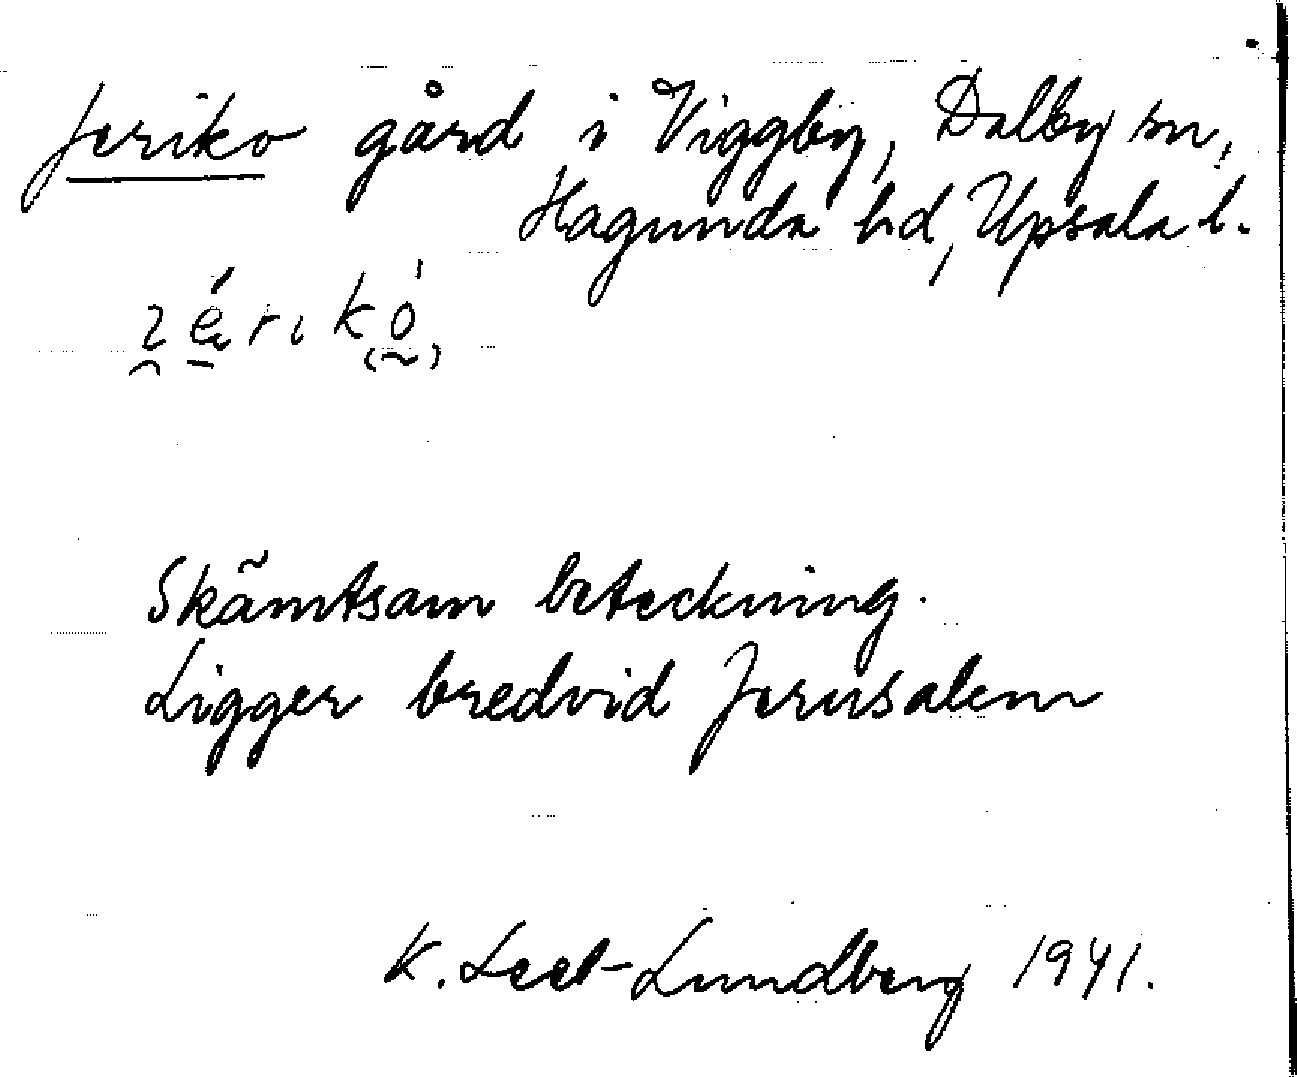 Jeriko gård i Viggby, Dalby sn,
Hagunda hd, Upsala l.
Skämtsam beteckning.
Ligger bredvid Jerusalem
K. Leet-Lundberg 1941.